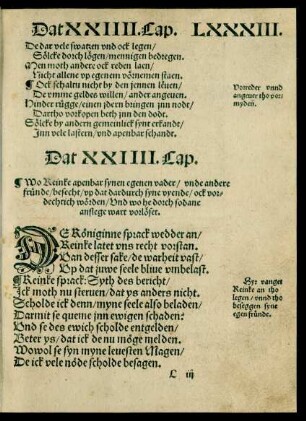 Dat XXIIII. Cap. LXXXIII.
De dar vele swatzen vnd ock legen/
Sölcke dorch lögen/ mennigen bedregen.
Men moth andere ock reden laen/
Nicht allene vp egenem vörnemen staen.
¶ Ock schaltu nicht by den jennen leuen/
De vmme geldes willen/ ander angeuen.
Hinder rügge/ einen jdern bringen jnn nodt/
Dartho vorkopen beth jnn den dodt.
Sölcke by andern gemenlick synt erkandt/
Jnn vele lastern/ vnd apenbar schandt.
Vorreder vnnd
angeuer tho vor
myden.
Dat XXIIII. Cap.
¶ Wo Reinke apenbar synen egenen vader/ vnde andere
fründe/ besecht/ vp dat dardurch syne vyende/ ock vor-
dechtich wörden/ Vnd wo he dorch sodane
anslege wart vorlöset.
DE Königinne sprack wedder an/
Reinke latet vns recht vorstan.
Van desser sake/ de warheit vast/
Vp dat juwe seele bliue vmbelast.
¶ Reinke sprack: Syth des bericht/
Ick moth nu steruen/ dat ys anders nicht.
Scholde ick denn/ myne seele also beladen/
Darmit se queme jnn ewigen schaden:
Vnd se des ewich scholde entgelden/
Beter ys/ dat ick de nu möge melden.
Wowol se syn myne leuesten Magen/
De ick vele nöde scholde besagen.
Hyr vanget
Reinke an tho
legen/ vnnd tho
beseggen syne
egen fründe.
L iij